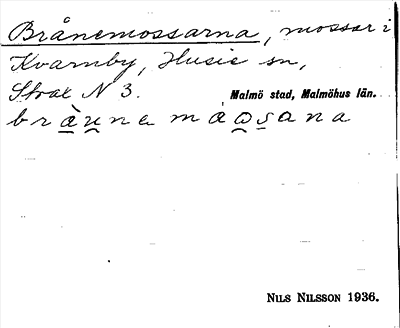 Brånemossarna, mossar i
Kvarnby, Husie sn,
Strax N 3. Malmö stad, Malmöhus län.
bràu̯ne mào̯s̱ana
NILS NILSSON 1936.